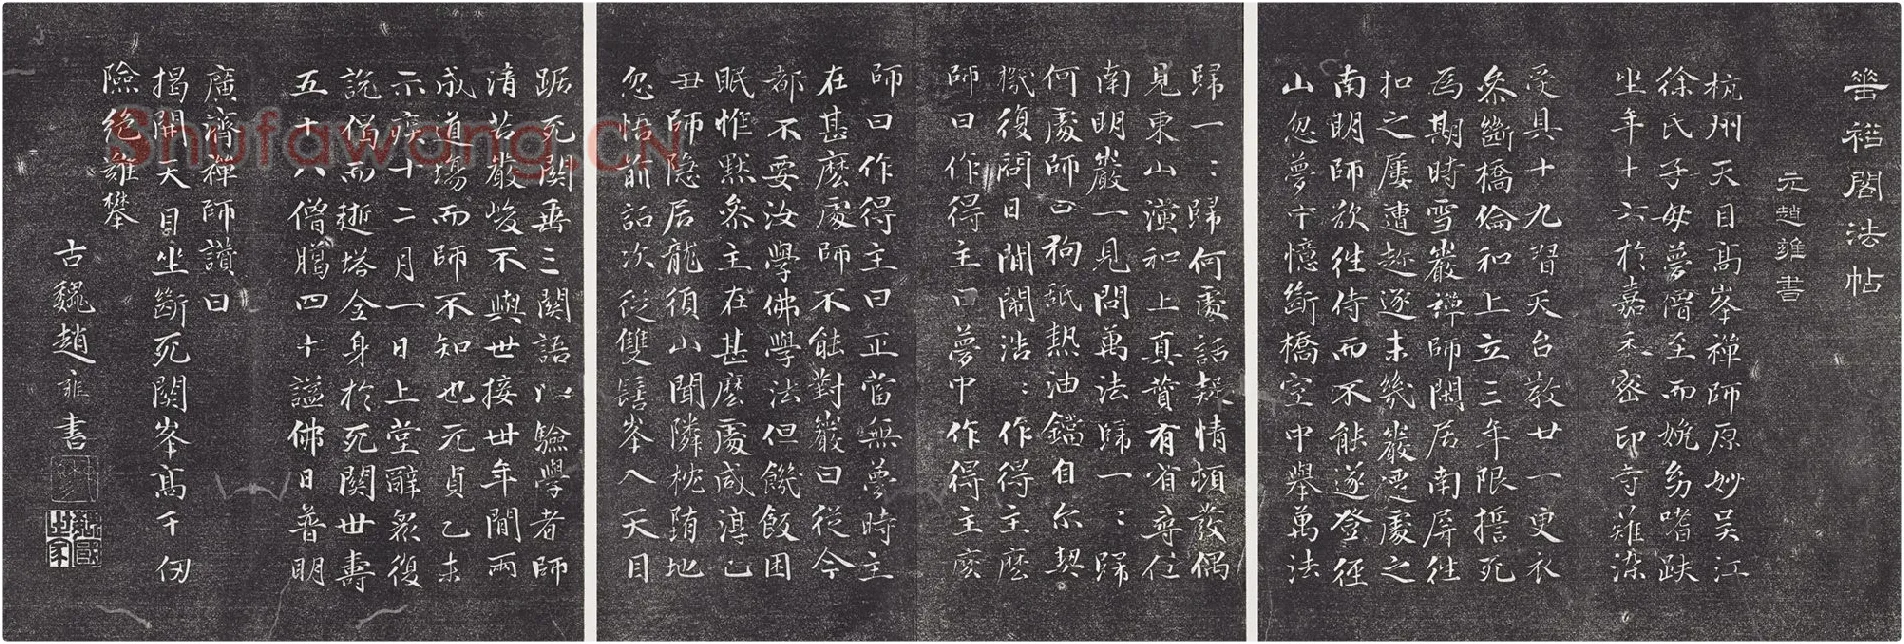 華禧閣法帖
元趙雍書
杭州天目高峯禪師原妙吳江
徐氏子母夢僧至而娩幼嗜趺
坐年十六於嘉禾密印寺薙染
受具十九習天台教廿一更衣
參斷橋倫和上立三年限擔死
為期時雪巖禪師閑居南屏往
扣之屢遭趂逐未幾巖遷處之
南明師欲往侍而不能遂登徑
山忽夢中憶斷橋室中舉萬法
歸一:歸何處話疑情頓發偶
見東山演和上真贊有省尋位
南明巖一見問萬法歸一:歸
何處師曰狗舐熱油鐺自尓契
機復問日間鬧浩:作得主麽
師曰作得主曰夢中作得主麽
師曰作得主曰正當無夢時主
在甚麽處師不能對巖曰從今
都不要汝學佛學法但饑飯困
眠惟默參主在甚麽處咸淳乙
丑師隱居龍須山聞隣枕墮地
忽悟前話次從雙髻峯入天目
踞死關垂三關語以驗學者師
清苦嚴峻不與世接丗年間兩
成道場而師不知也元貞乙未
示疾十二月一日上堂辭眾復
說偈而逝塔全身於死關世壽
五十八僧臈四十謚佛日普明
廣濟禪師讚曰
揭開天目坐斷死關峯高千仞
險絶難攀
古魏趙雍書
Shufawang.CN